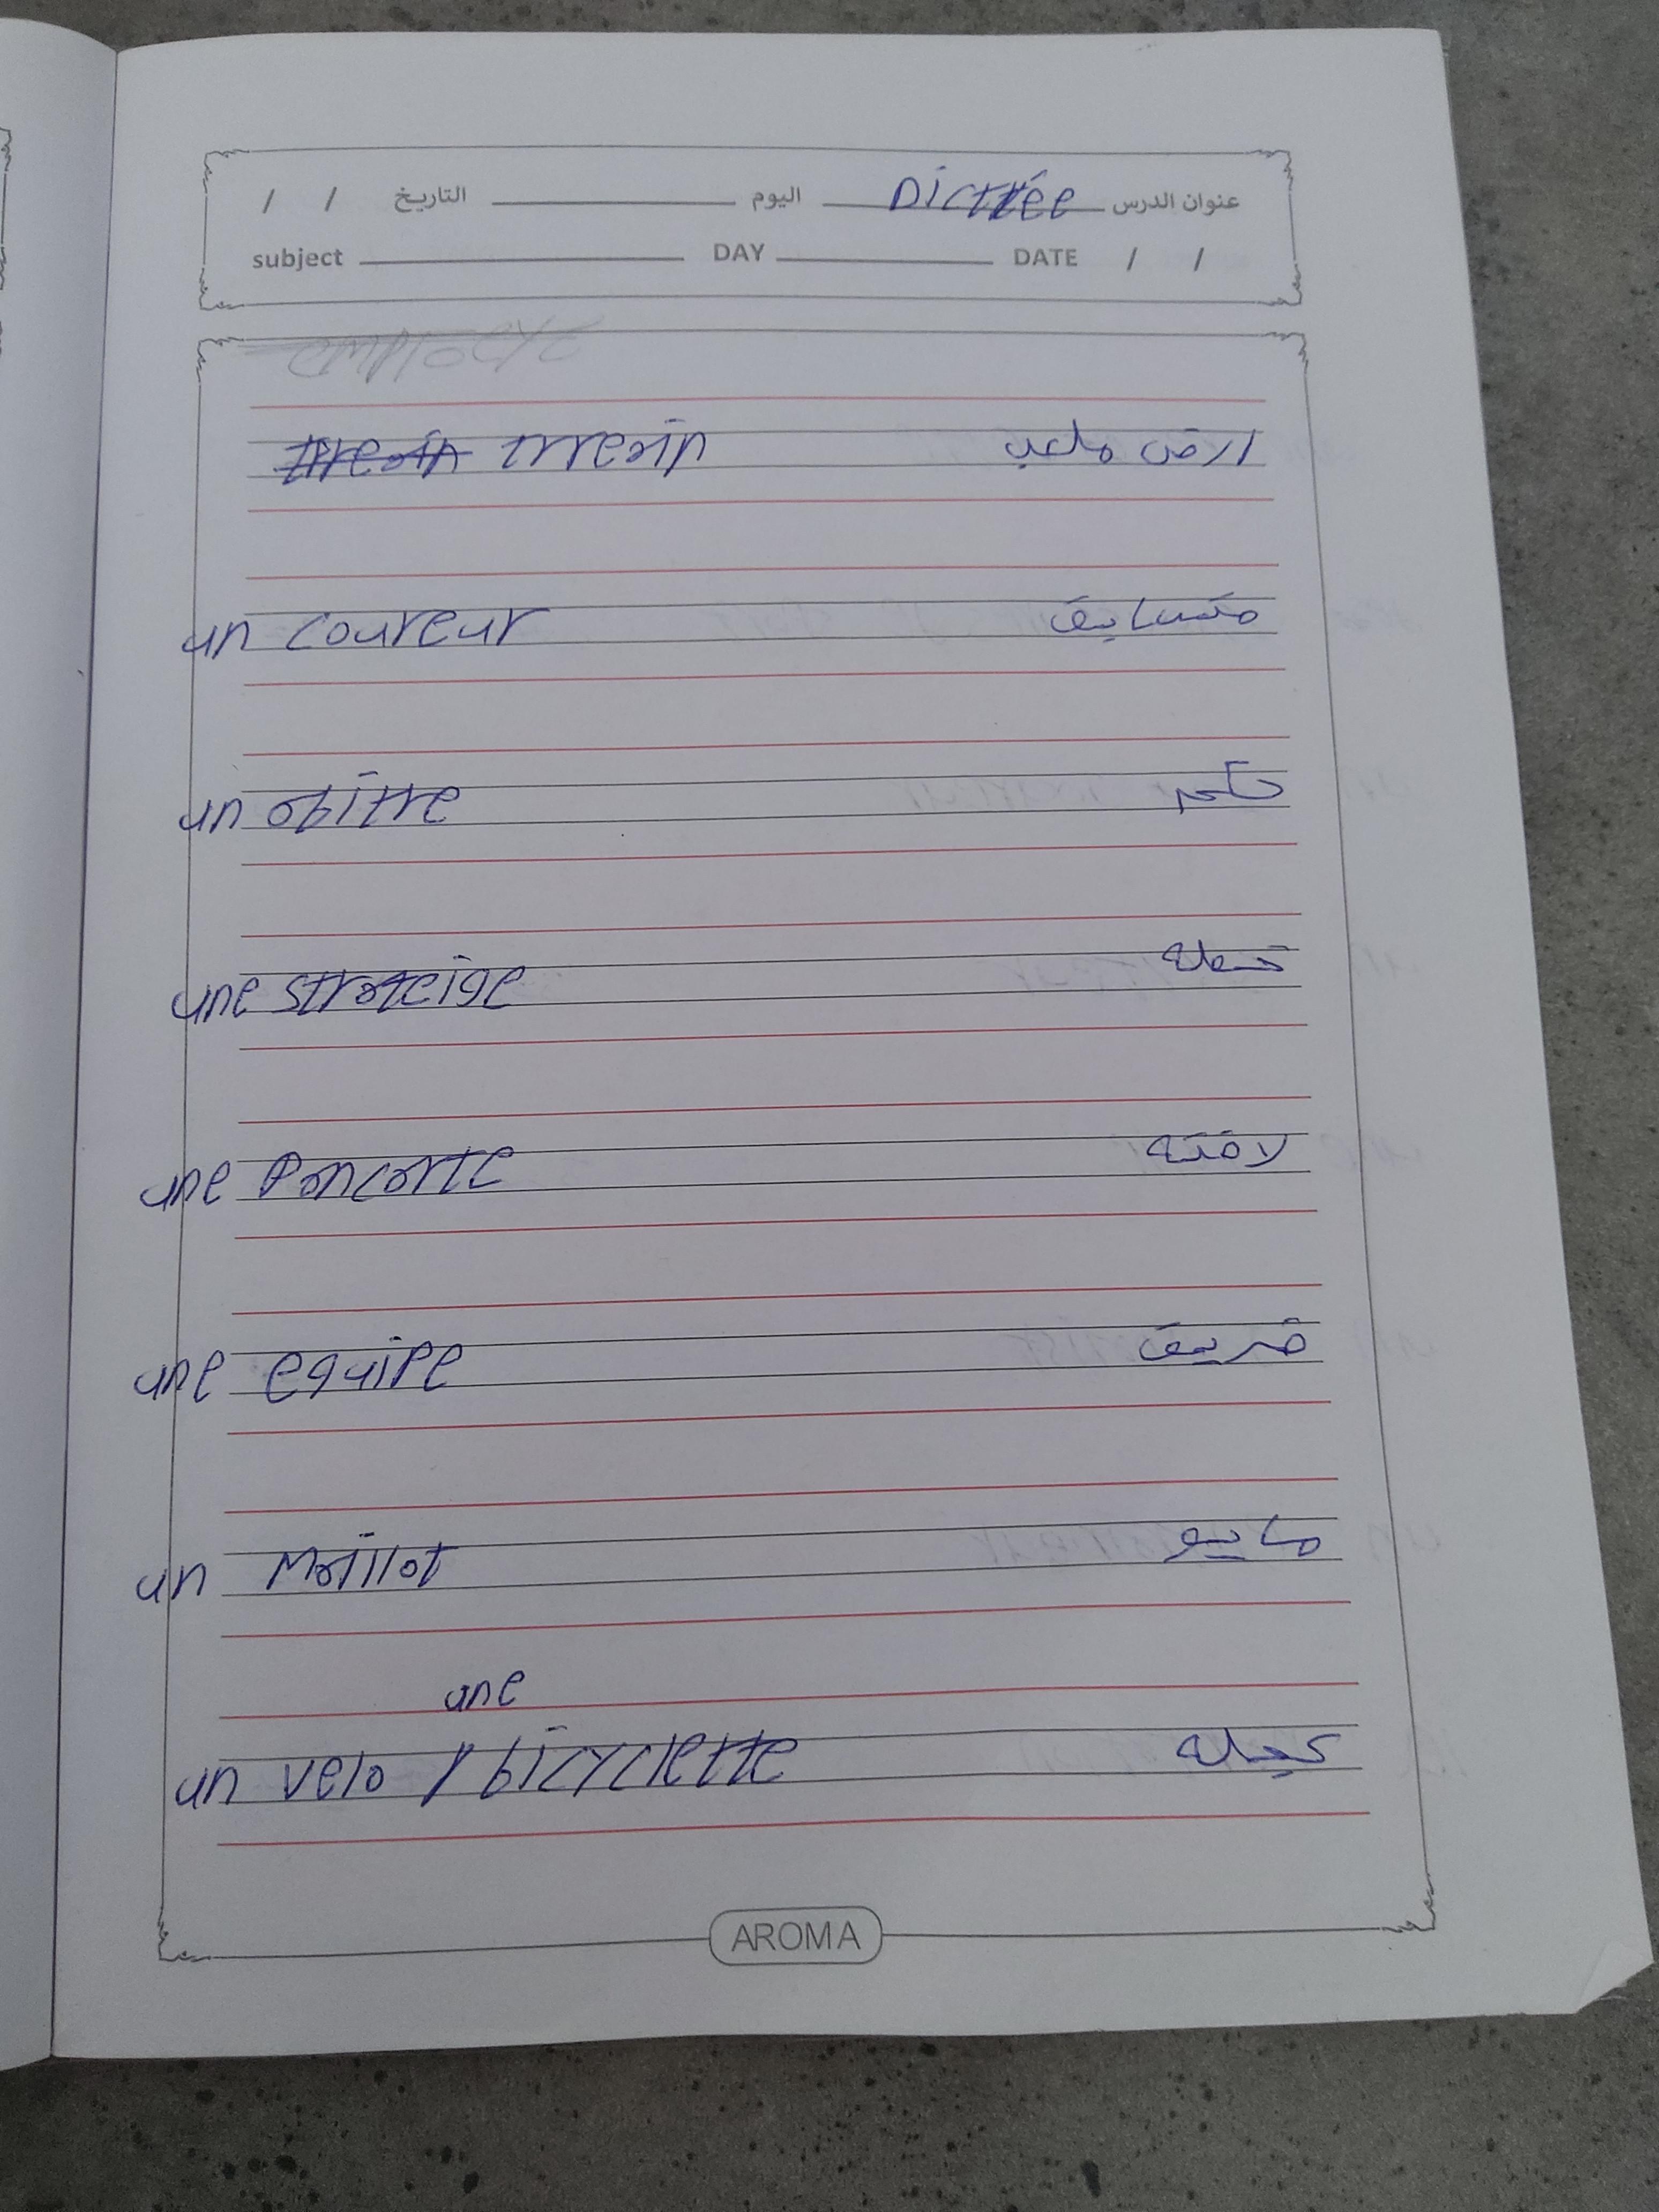 عنوان الدرس Dictrée اليوم التاريخ / /
subject DAY DATE / /
trreain ارض ملعب
un coureur متسابق
un abitre حكم
une strateige خطه
une Pancarte لافته
une equipe فريق
un Maillot مايو
une
un velo / bicyclette عجله
AROMA